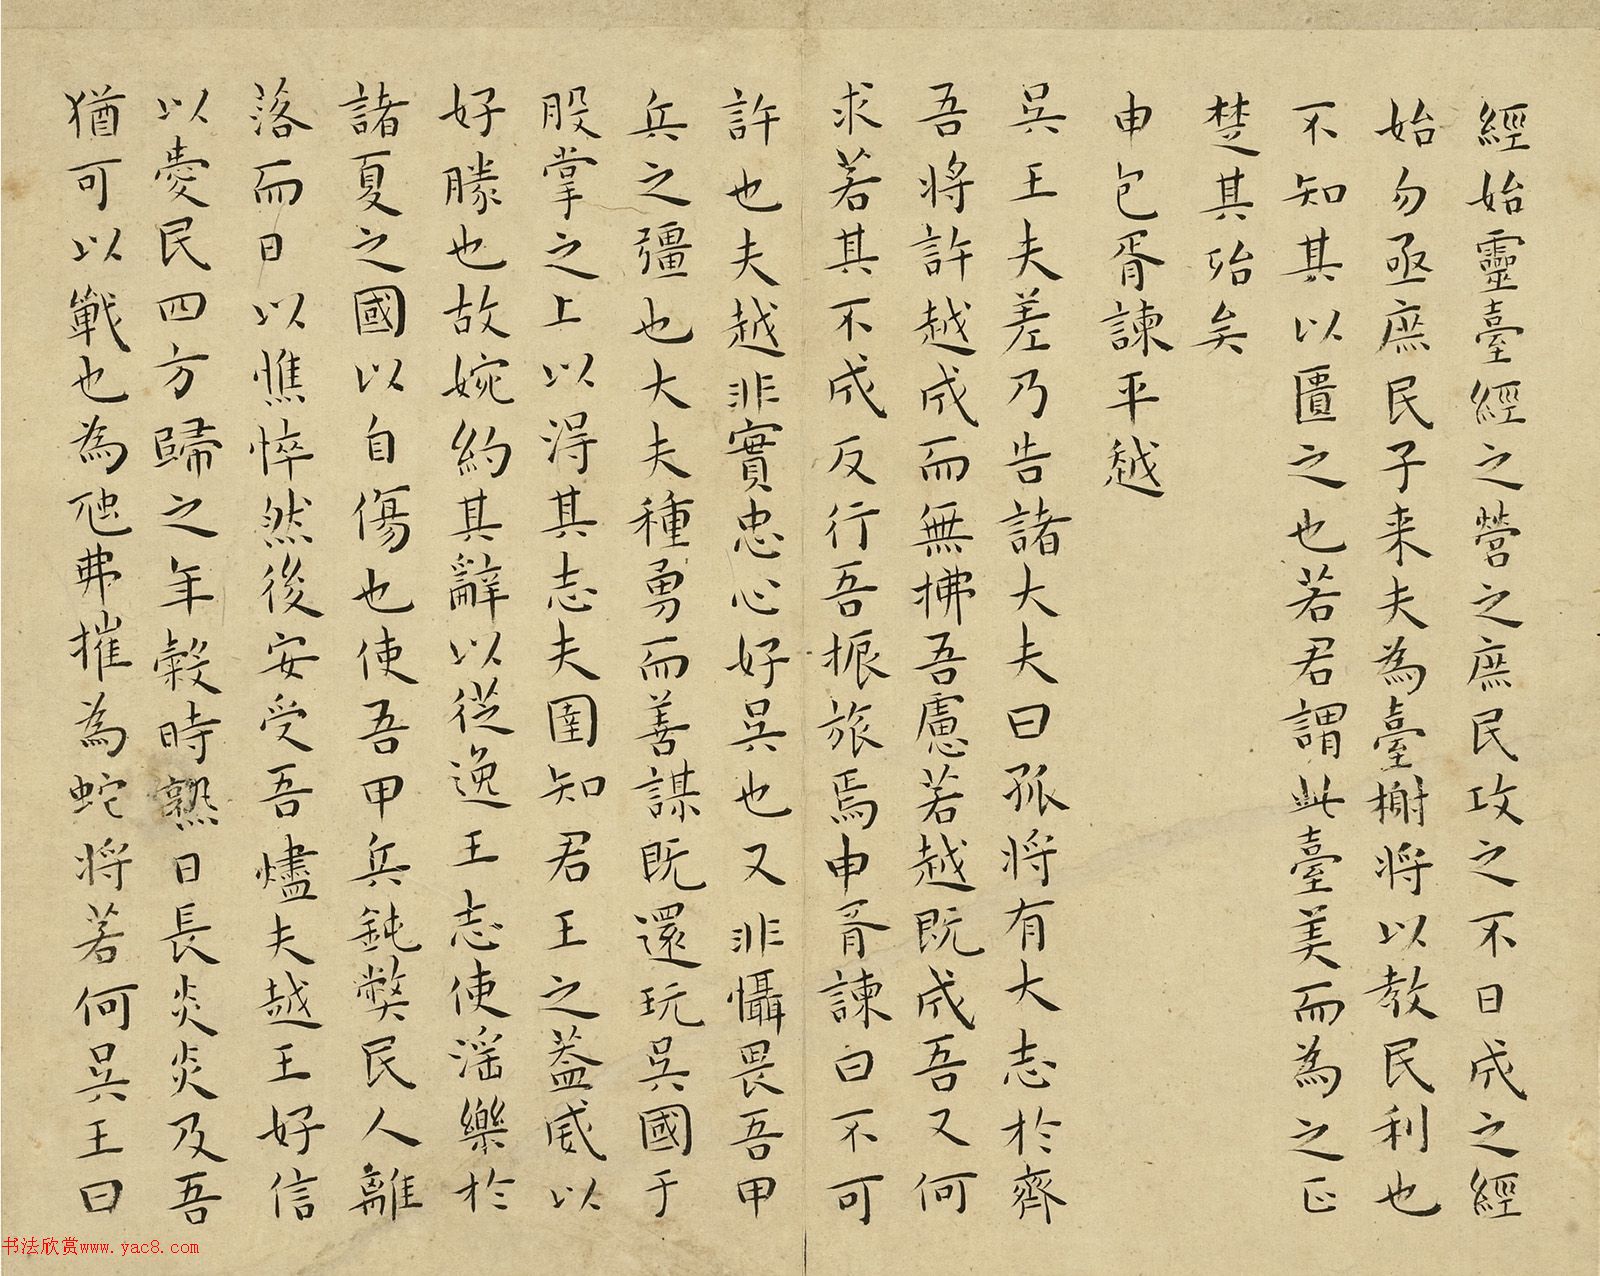 經始靈臺經之營之庶民攻之不日成之經
始勿亟庶民子来夫為臺榭將以教民利也
不知其以匱之也若君謂此臺美而為之正
楚其殆矣
申包胥諫平越
吳王夫差乃告諸大夫曰孤將有大志於齊
吾將許越成而無拂吾慮若越既成吾又何
求若其不成反行吾振旅焉申胥諫曰不可
許也夫越非實忠心好吳也又非懾畏吾甲
兵之彊也大夫種勇而善謀既還玩吳國于
股掌之上以淂其志夫圉知君王之蓋威以
好勝也故婉約其辭以從逸王志使滛樂於
諸夏之國以自傷也使吾甲兵鈍獘民人離
落而日以憔悴然後安受吾燼夫越王好信
以愛民四方歸之年穀時熟日長炎炎及吾
猶可以戰也為虺弗摧為蛇將若何吳王曰
书法欣赏www.yac8.com